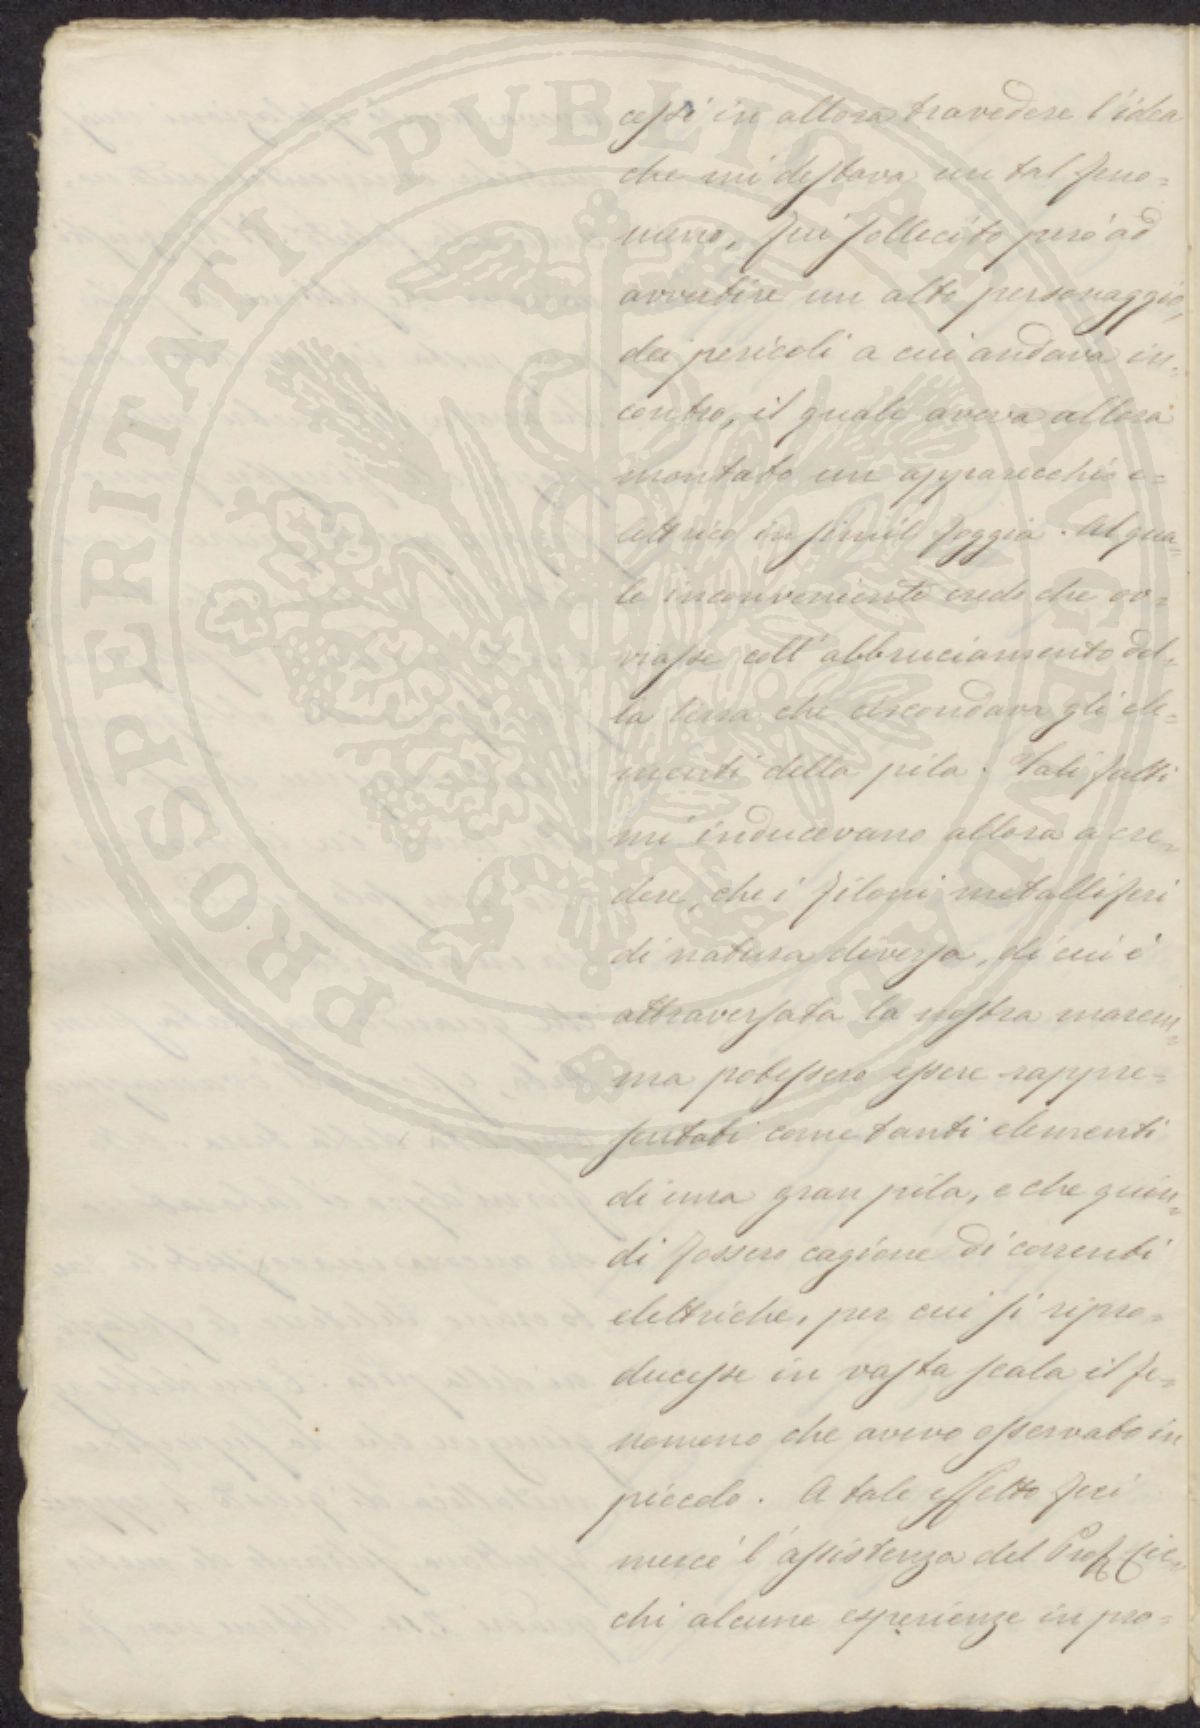 PROSPERITATI PVBLICAE AVGENDAE
cessi in allora travedere l'idea
che mi destava un tal feno=
meno, fui sollecito però ad
avvertire un alto personaggio,
dei pericoli a cui andava in=
contro, il quale aveva allora
montato un apparecchio e=
lettrico in simil foggia. Al qua=
le inconveniente credo che ov=
viasse coll'abbruciamento del=
la terra che circondava gli ele=
menti della pila. Tali fatti
mi inducevano allora a cre=
dere, che i filoni metalliferi
di natura diversa, di cui è
attraversata la nostra marem=
ma potessero essere rappre=
sentati come tanti elementi
di una gran pila, e che quin=
di fossero cagione di correnti
elettriche, per cui si ripro=
ducesse in vasta scala il fe=
nomeno che avevo osservato in
piccolo. A tale effetto feci
mercé l'assistenza del Prof. Cec=
chi alcune esperienze in pro=